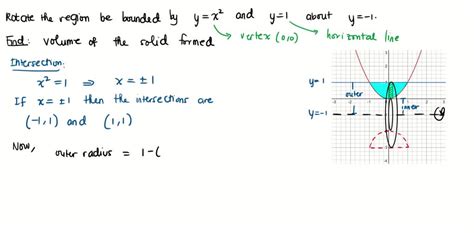 Rotate the region be bounded by y=x² and y=1 about y=-1.
Find: volume of the solid formed
vertex (0,0)
horizontal line
Intersection:
x² = 1 ⇒ x = ±1
If x = ±1 then the intersections are
(-1,1) and (1,1)
Now,
outer radius = 1-(
y=1
outer
inner
y=-1